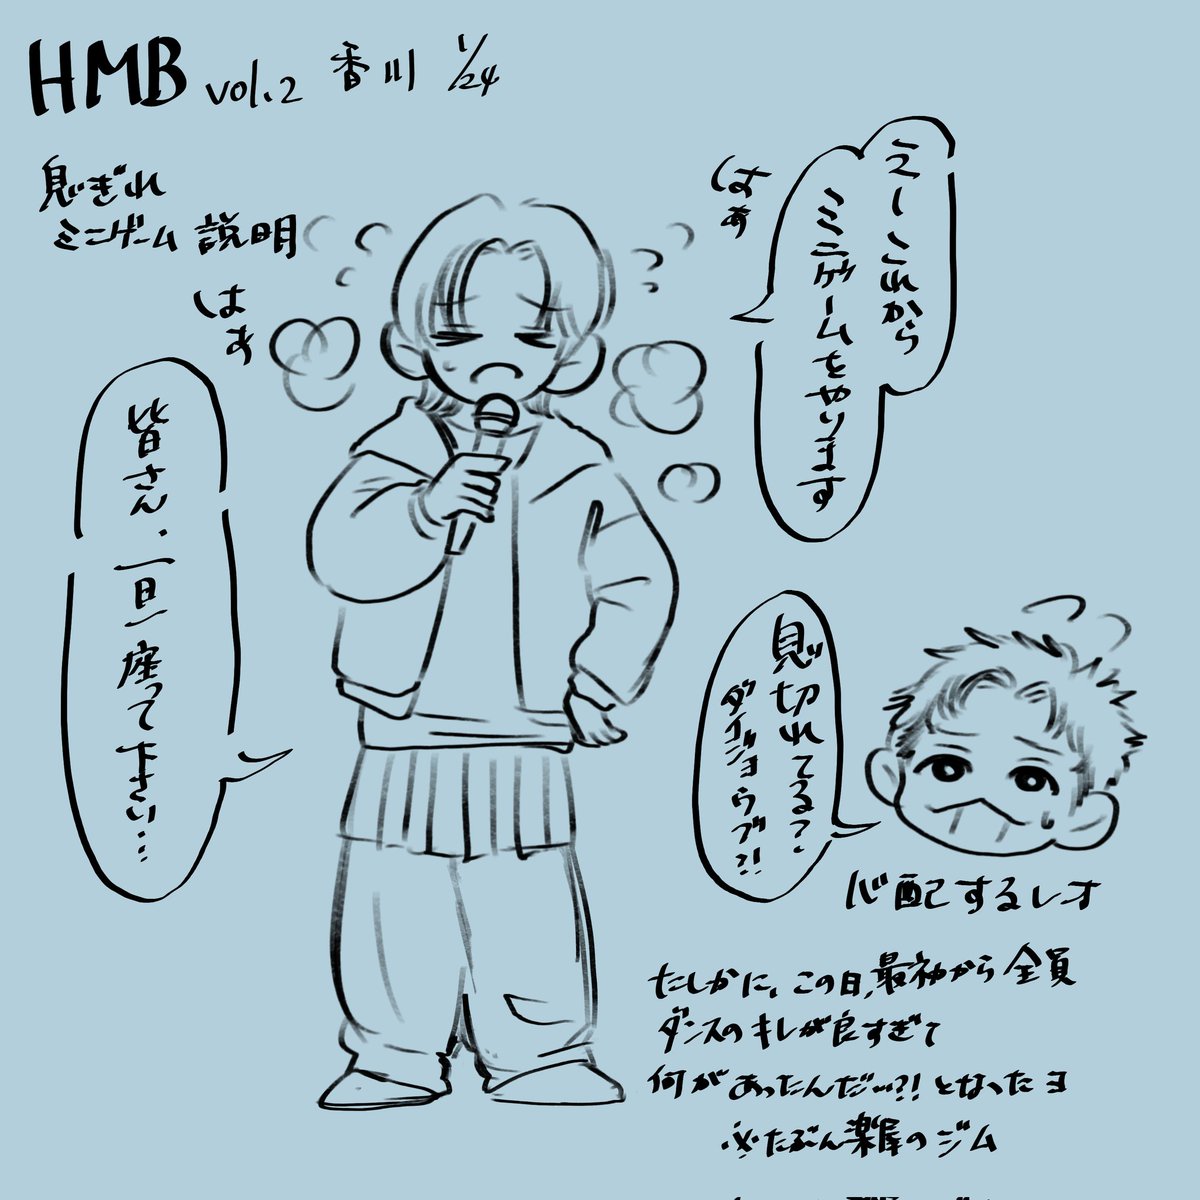 HMB vol.2 香川 1/24
息ぎれ
ミニゲーム 説明
はぁ
はぁ
えー これから
ミニゲームをやります
皆さん、一旦座って下さい…
息切れてる?
ダイジョウブ?!
心配するレオ
たしかに、この日、最初から全員
ダンスのキレが良すぎて
何があったんだ…?! となったヨ
※たぶん楽屋のジム